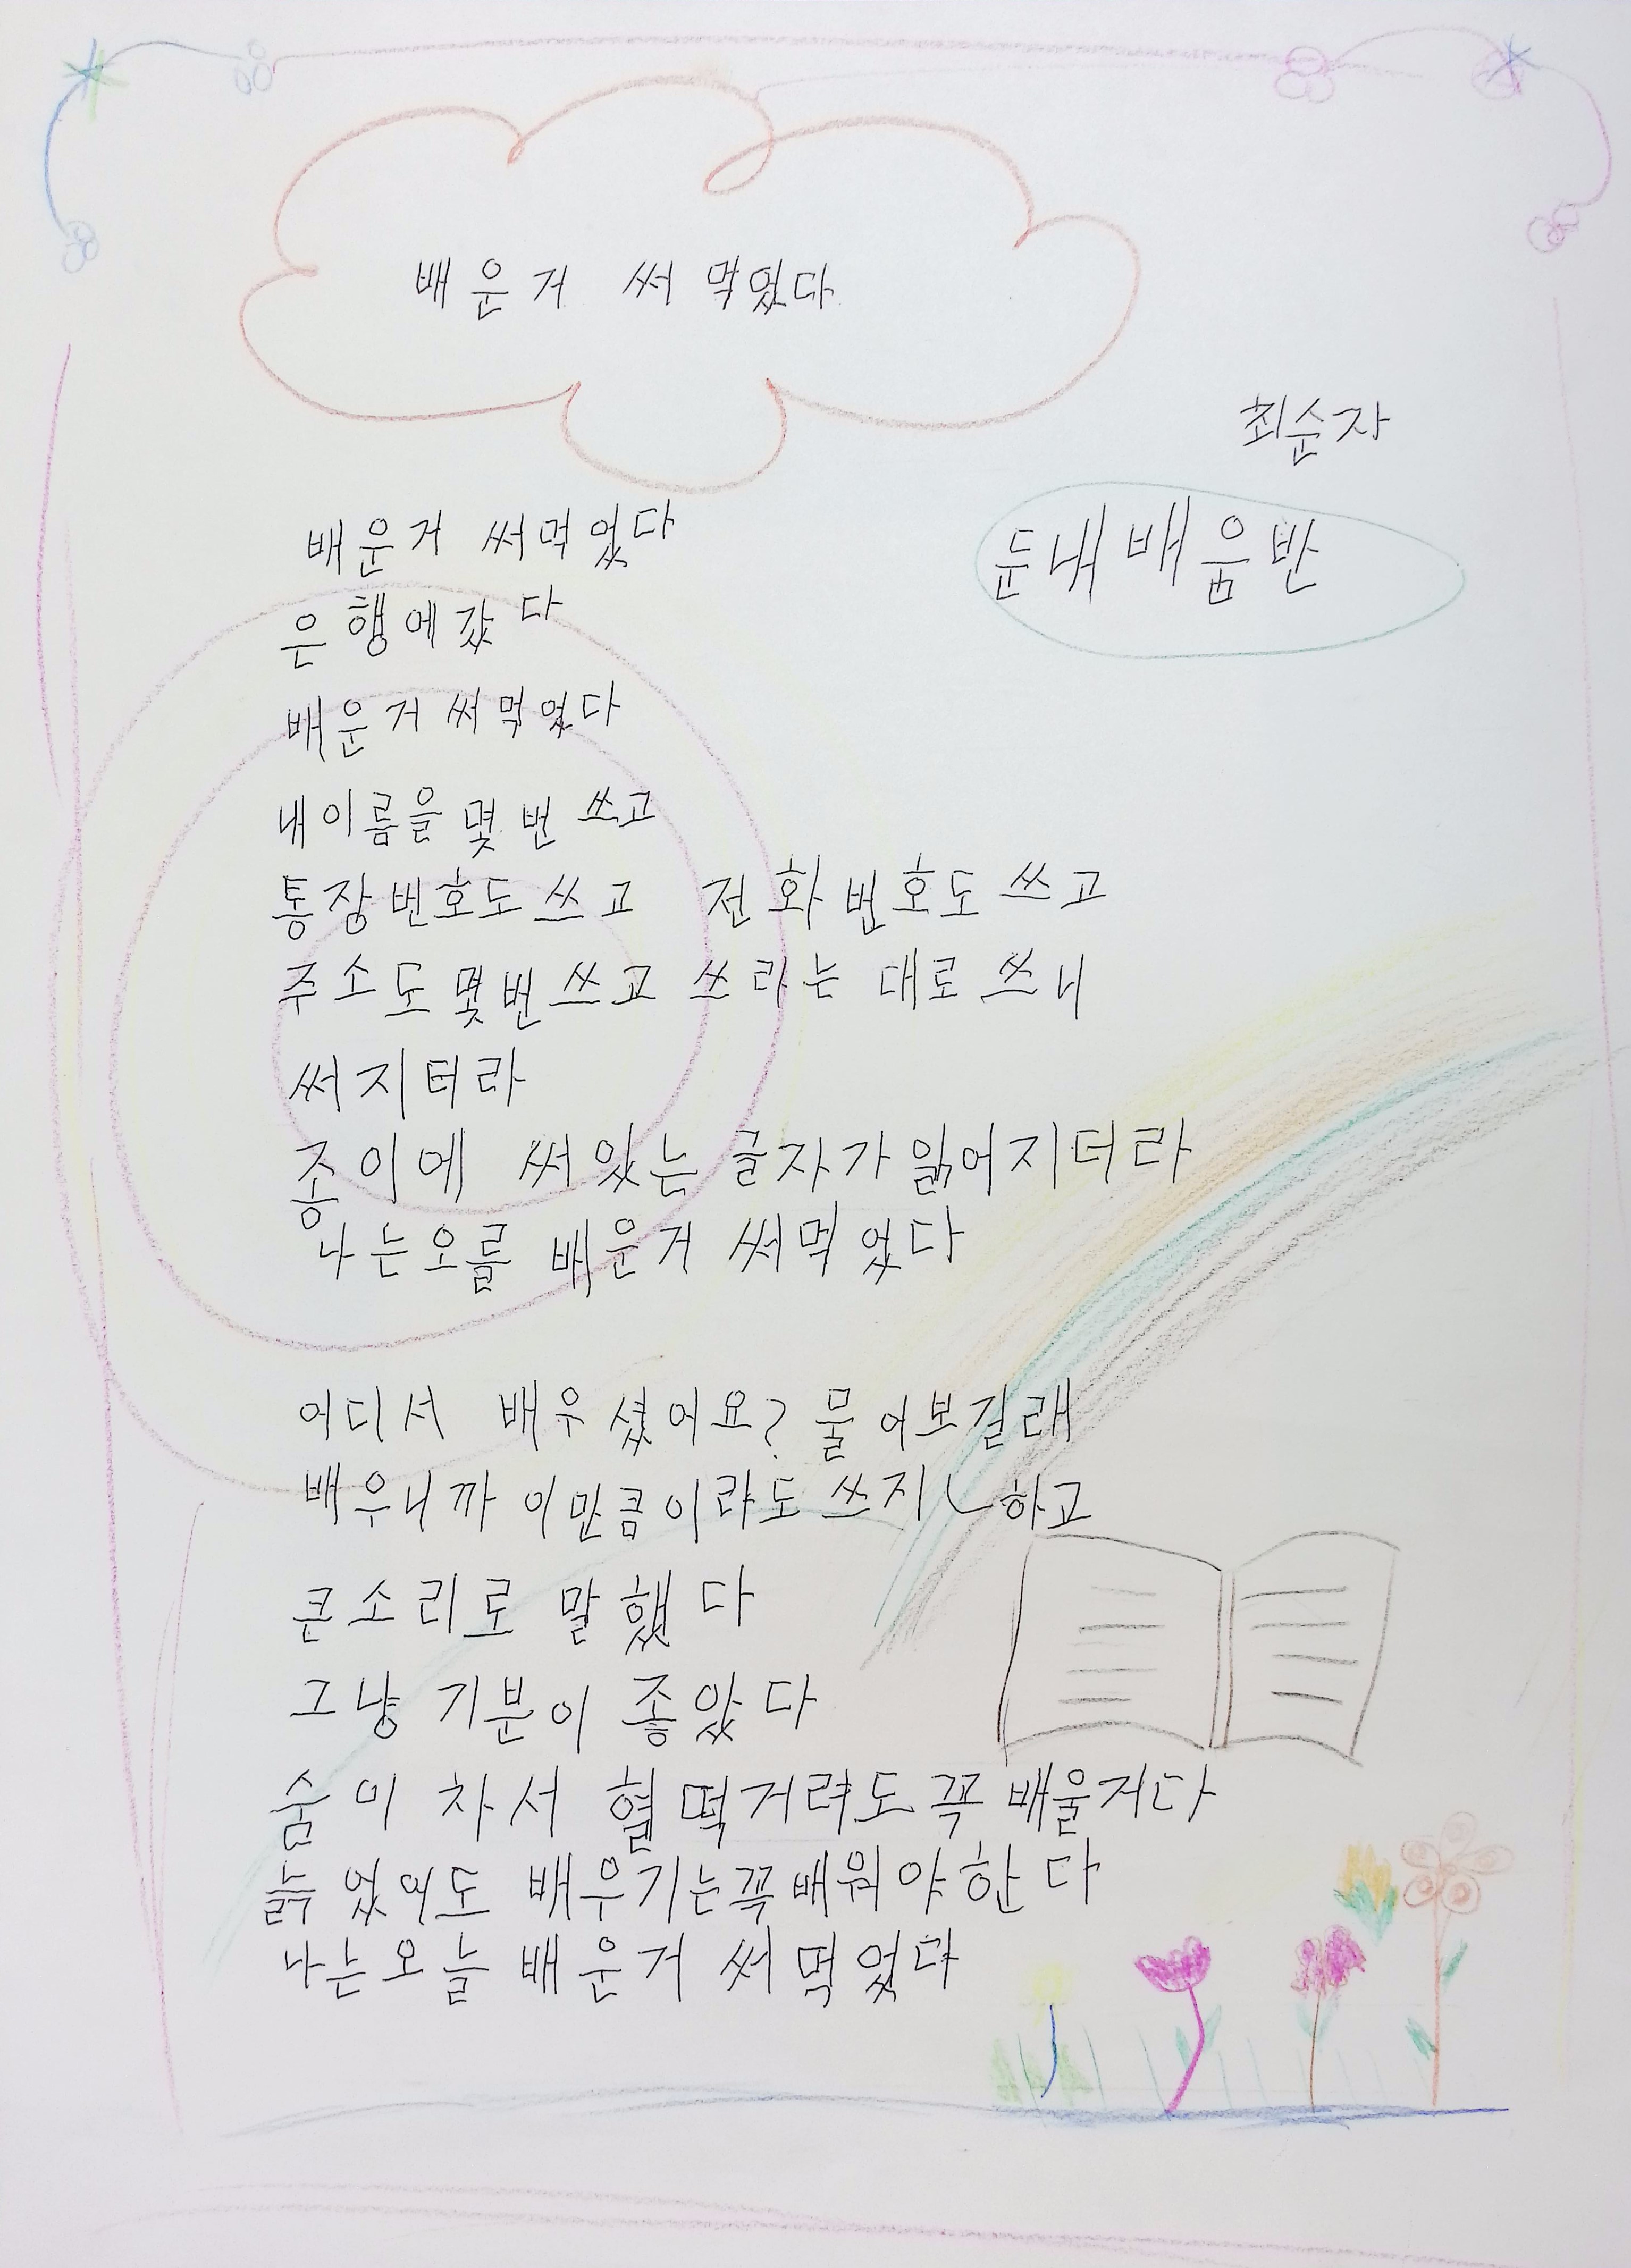 배운거 써먹었다
최순자
둔내배움반
배운거 써먹었다
은행에갔다
배운거써먹었다
내이름을 몇번 쓰고
통장번호도쓰고 전화번호도쓰고
주소도몇번쓰고 쓰라는 대로쓰니
써지더라
종이에 써있는 글자가읽어지더라
나는오를 배운거 써먹었다
어디서 배우셨어요? 물어보길래
배우니까 이만큼이라도 쓰지 하고
큰소리로 말했다
그냥 기분이 좋았다
숨이 차서 헐떡거려도 꼭 배울거다
늙었어도 배우기는꼭배워야한다
나는오늘 배운거 써먹었다